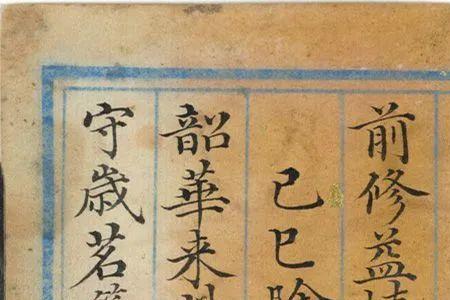 前修益
己巳除
韶華来
守歳茗